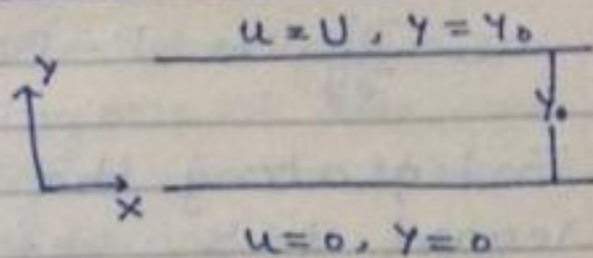 u = U, y = y₀
y
y₀
x
u = 0, y = 0